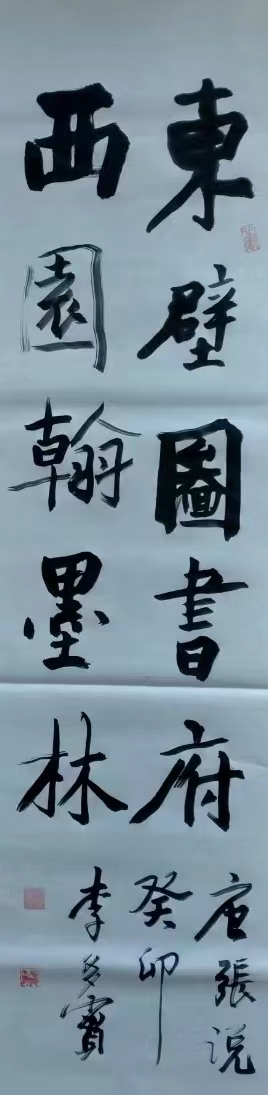 東壁圖書府
西園翰墨林
唐張说
癸卯
李多賓